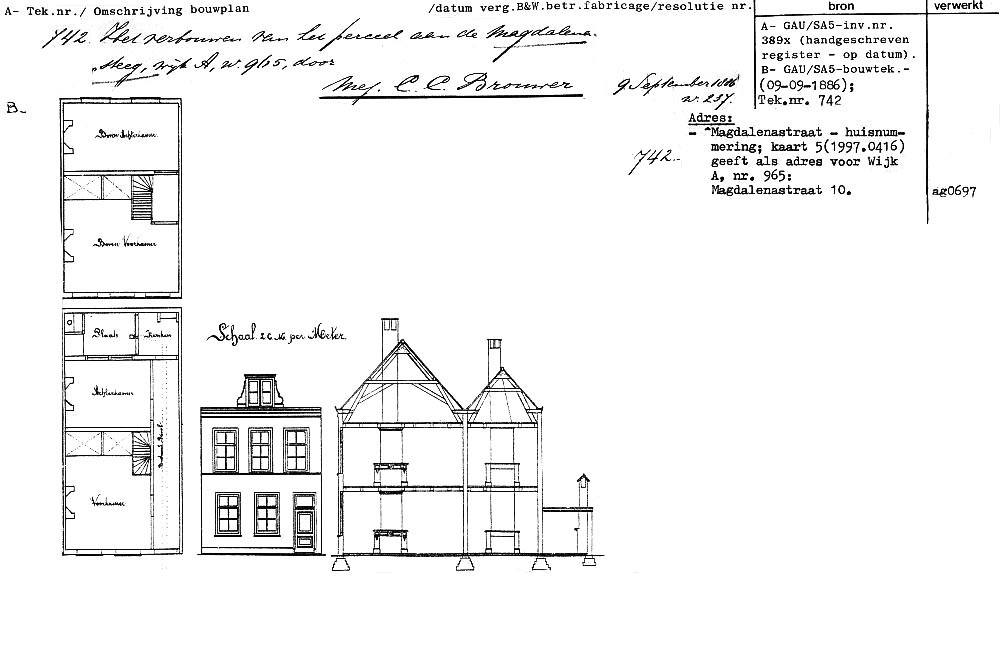 A- Tek.nr./ Omschrijving bouwplan /datum verg.B&W.betr.fabricage/resolutie nr. bron verwerkt
742. Het verbouwen van het perceel aan de Magdalena-
steeg, wijk A, no. 965, door
Mej. C. C. Brouwer
9 September 1886
no. 237.
A- GAU/SA5-inv.nr.
389x (handgeschreven
register - op datum).
B- GAU/SA5-bouwtek.-
(09-09-1886);
Tek.nr. 742
B-
742.-
Adres:
- "Magdalenastraat - huisnum-
mering; kaart 5(1997.0416)
geeft als adres voor Wijk
A, nr. 965:
Magdalenastraat 10.
ag0697
Boven Achterkamer.
Boven Voorkamer
Plaats Keuken
Achterkamer
Voorkamer
Schaal 2 C.M. per Meter.